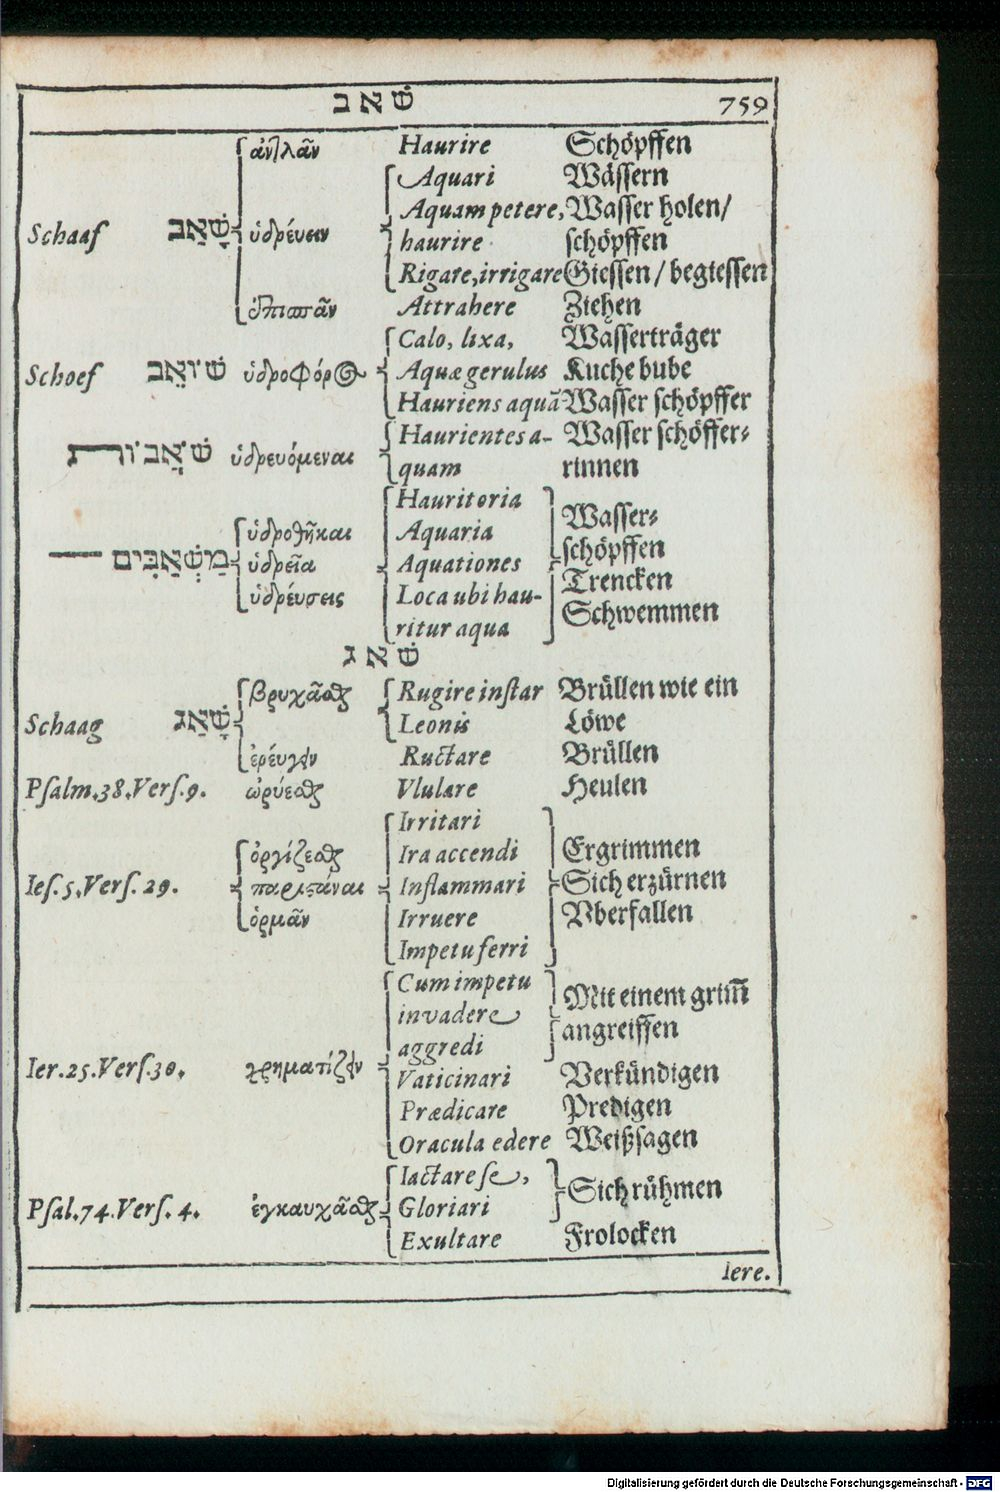 שׁאב 759
ἀντλᾶν Haurire Schöpffen
Aquari Wässern
Aquam petere, Wasser holen/
Schaaf שָׁאַב ὑδρέυειν haurire schöpffen
Rigare, irrigare Giessen / begiessen
Attrahere Ziehen
Calo, lixa, Wasserträger
Schoef שׁוֹאֵב ὑδροφόρος Aquæ gerulus Kuche bube
Hauriens aquã Wasser schöpffer
Haurientes a- Wasser schöffer-
ὑδρευόμεναι quam rinnen
Hauritoria Wasser-
ὑδροθῆκαι Aquaria schöpffen
מַשְׁאַבִּים ὑδρεῖα Aquationes Trencken
ὑδρέυσεις Loca ubi hau- Schwemmen
ritur aqua
שׁאג
βρυχᾶσθαι Rugire instar Brüllen wie ein
Schaag שָׁאַג Leonis Löwe
ἐρέυγειν Ructare Brüllen
Psalm. 38. Vers. 9. ὠρύεσθαι Vlulare Heulen
Irritari
ὀργίζεσθαι Ira accendi Ergrimmen
Ies. 5. Vers. 29. Inflammari Sich erzürnen
ὁρμᾶν Irruere Vberfallen
Impetu ferri
Cum impetu Mit einem grim̃
invadere angreiffen
aggredi
Ier. 25. Vers. 30. χρηματίζειν Vaticinari Verkündigen
Prædicare Predigen
Oracula edere Weißsagen
Iactare se, Sich rühmen
Psal. 74. Vers. 4. ἐγκαυχᾶσθαι Gloriari
Exultare Frolocken
Iere.
Digitalisierung gefördert durch die Deutsche Forschungsgemeinschaft - DFG